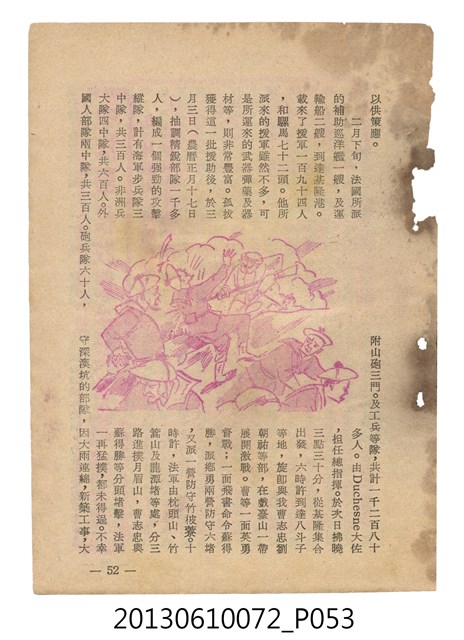 以供策應。
二月下旬，法國所派
的補助巡洋艦一艘，及運
輸船二艘，到達基隆港。
載來了援軍一百九十四人
，和騾馬七十二頭。他所
派來的援軍雖然不多，可
是所運來的武器彈藥及器
材等，則非常豐富。孤拔
獲得這一批援助後，於三
月三日（農曆正月十七日
），抽調精銳部隊一千多
人，編成一個強勁的攻擊
縱隊，計有海軍步兵隊三
中隊，共三百人。非洲兵
大隊四中隊，共六百人。外
國人部隊兩中隊，共三百人。砲兵隊六十人，
附山砲三門。及工兵等隊，共計一千二百八十
多人。由Duchesne大佐
，担任總指揮。於次日拂曉
三點三十分，從基隆集合
出發，六時許到達八斗子
等地，旋卽與我曹志忠劉
朝祜等部，在戲臺山一帶
展開激戰。曹等一面英勇
督戰；一面飛書命令蘇得
勝，派鄉勇兩營防守六堵
，又派一營防守竹篙藔。十
時許，法軍由枕頭山、竹
篙山及龍潭堵等處，分三
路進撲月眉山，曹志忠與
蘇得勝等分頭堵擊，法軍
一再猛撲，都未得逞。不幸
守深澳坑的部隊，因大雨連綿，新築工事，大
— 52 —
20130610072_P053